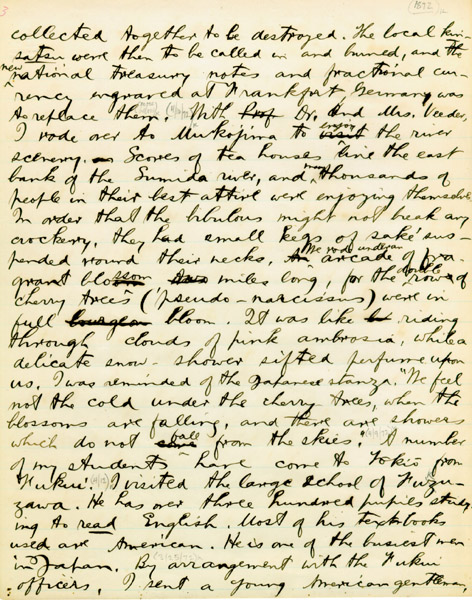 3
1872
collected together to be destroyed. The local kin-
satsu were then to be called in and burned, and the
new
national treasury notes and fractional cur-
rency engraved at Frankfort Germany, was
to replace them. With Prof. Dr. and Mrs. Veeder,
I rode over to Mukojima to visit the river
enjoy
scenery. Scores of tea houses line the east
bank of the Sumida river, and many thousands of
people in their best attire were enjoying themselves.
In order that the bibulous might not break any
crockery, they had small kegs of saké sus-
pended round their necks, We rode under an
arcade of fra
grant blossom two miles long, for the double rows of
cherry trees ('pseudo-narcissus) were in
full bourgeon bloom. It was like riding
through clouds of pink ambrosia, while a
delicate snow-shower sifted perfume upon
us. I was reminded of the Japanese stanza. "We feel
not the cold under the cherry trees, when the
blossoms are falling, and there are showers
which do not fall from the skies". A number
of my students have come to Tokio from
Fukui. I visited the large school of Fuzu-
zawa. He has over three hundred pupils study-
ing to read English. Most of his text-books
used are American. He is one of the busiest men
in Japan. By arrangement with the Fukui
officers, I sent a young American gentleman,